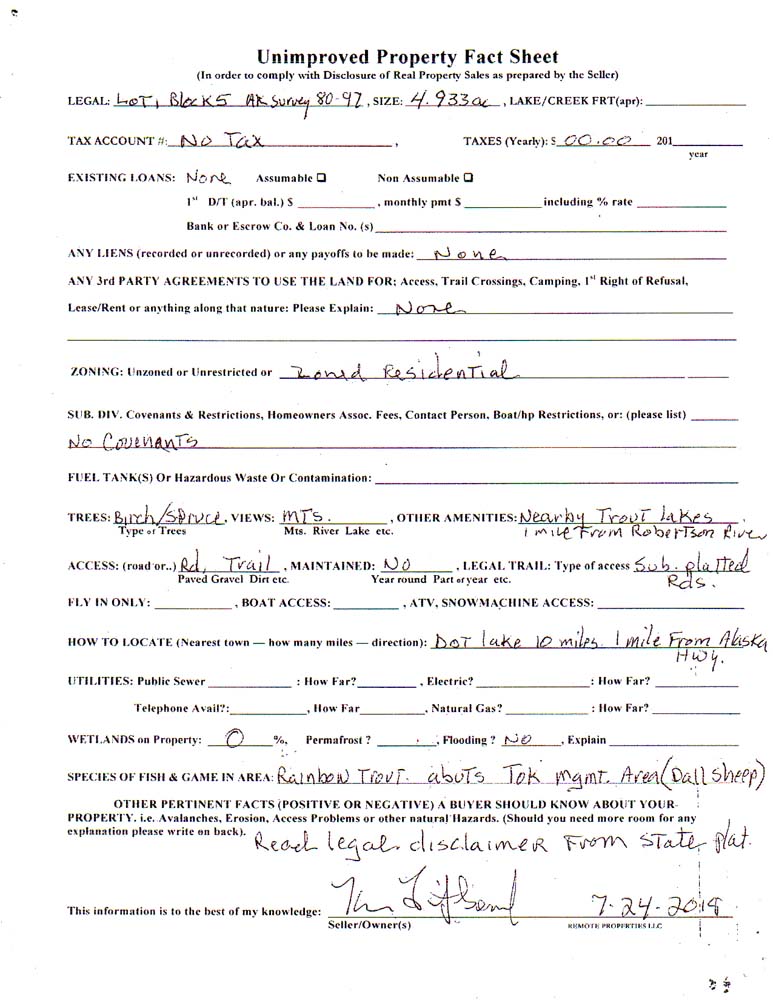 Unimproved Property Fact Sheet
(In order to comply with Disclosure of Real Property Sales as prepared by the Seller)
LEGAL: LOT 1 Block 5 AK Survey 80-97, SIZE: 4.933 ac, LAKE/CREEK FRT(apr):
TAX ACCOUNT #: No Tax, TAXES (Yearly): $ 00.00 201
year
EXISTING LOANS: None Assumable ❑ Non Assumable ❑
1st D/T (apr. bal.) $ , monthly pmt $ including % rate
Bank or Escrow Co. & Loan No. (s)
ANY LIENS (recorded or unrecorded) or any payoffs to be made: None
ANY 3rd PARTY AGREEMENTS TO USE THE LAND FOR; Access, Trail Crossings, Camping, 1st Right of Refusal,
Lease/Rent or anything along that nature: Please Explain: None
ZONING: Unzoned or Unrestricted or Zoned Residential
SUB. DIV. Covenants & Restrictions, Homeowners Assoc. Fees, Contact Person, Boat/hp Restrictions, or: (please list)
No Covenants
FUEL TANK(S) Or Hazardous Waste Or Contamination:
TREES: Birch/Spruce, VIEWS: MTS., OTHER AMENITIES: Nearby Trout Lakes
Type of Trees Mts. River Lake etc. 1 mile From Robertson River
ACCESS: (road or..) Rd, Trail, MAINTAINED: NO, LEGAL TRAIL: Type of access Sub. platted
Paved Gravel Dirt etc. Year round Part of year etc. Rds.
FLY IN ONLY: , BOAT ACCESS: , ATV, SNOWMACHINE ACCESS:
HOW TO LOCATE (Nearest town — how many miles — direction): Dot Lake 10 miles. 1 mile From Alaska
Hwy.
UTILITIES: Public Sewer : How Far? , Electric? : How Far?
Telephone Avail?: , How Far , Natural Gas? : How Far?
WETLANDS on Property: 0 %, Permafrost ? , Flooding ? NO , Explain
SPECIES OF FISH & GAME IN AREA: Rainbow Trout. abuts Tok Mgmt. Area (Dall sheep)
OTHER PERTINENT FACTS (POSITIVE OR NEGATIVE) A BUYER SHOULD KNOW ABOUT YOUR
PROPERTY. i.e. Avalanches, Erosion, Access Problems or other natural Hazards. (Should you need more room for any
explanation please write on back). Read legal disclaimer From State plat.
This information is to the best of my knowledge: 7-24-2018
Seller/Owner(s) REMOTE PROPERTIES LLC